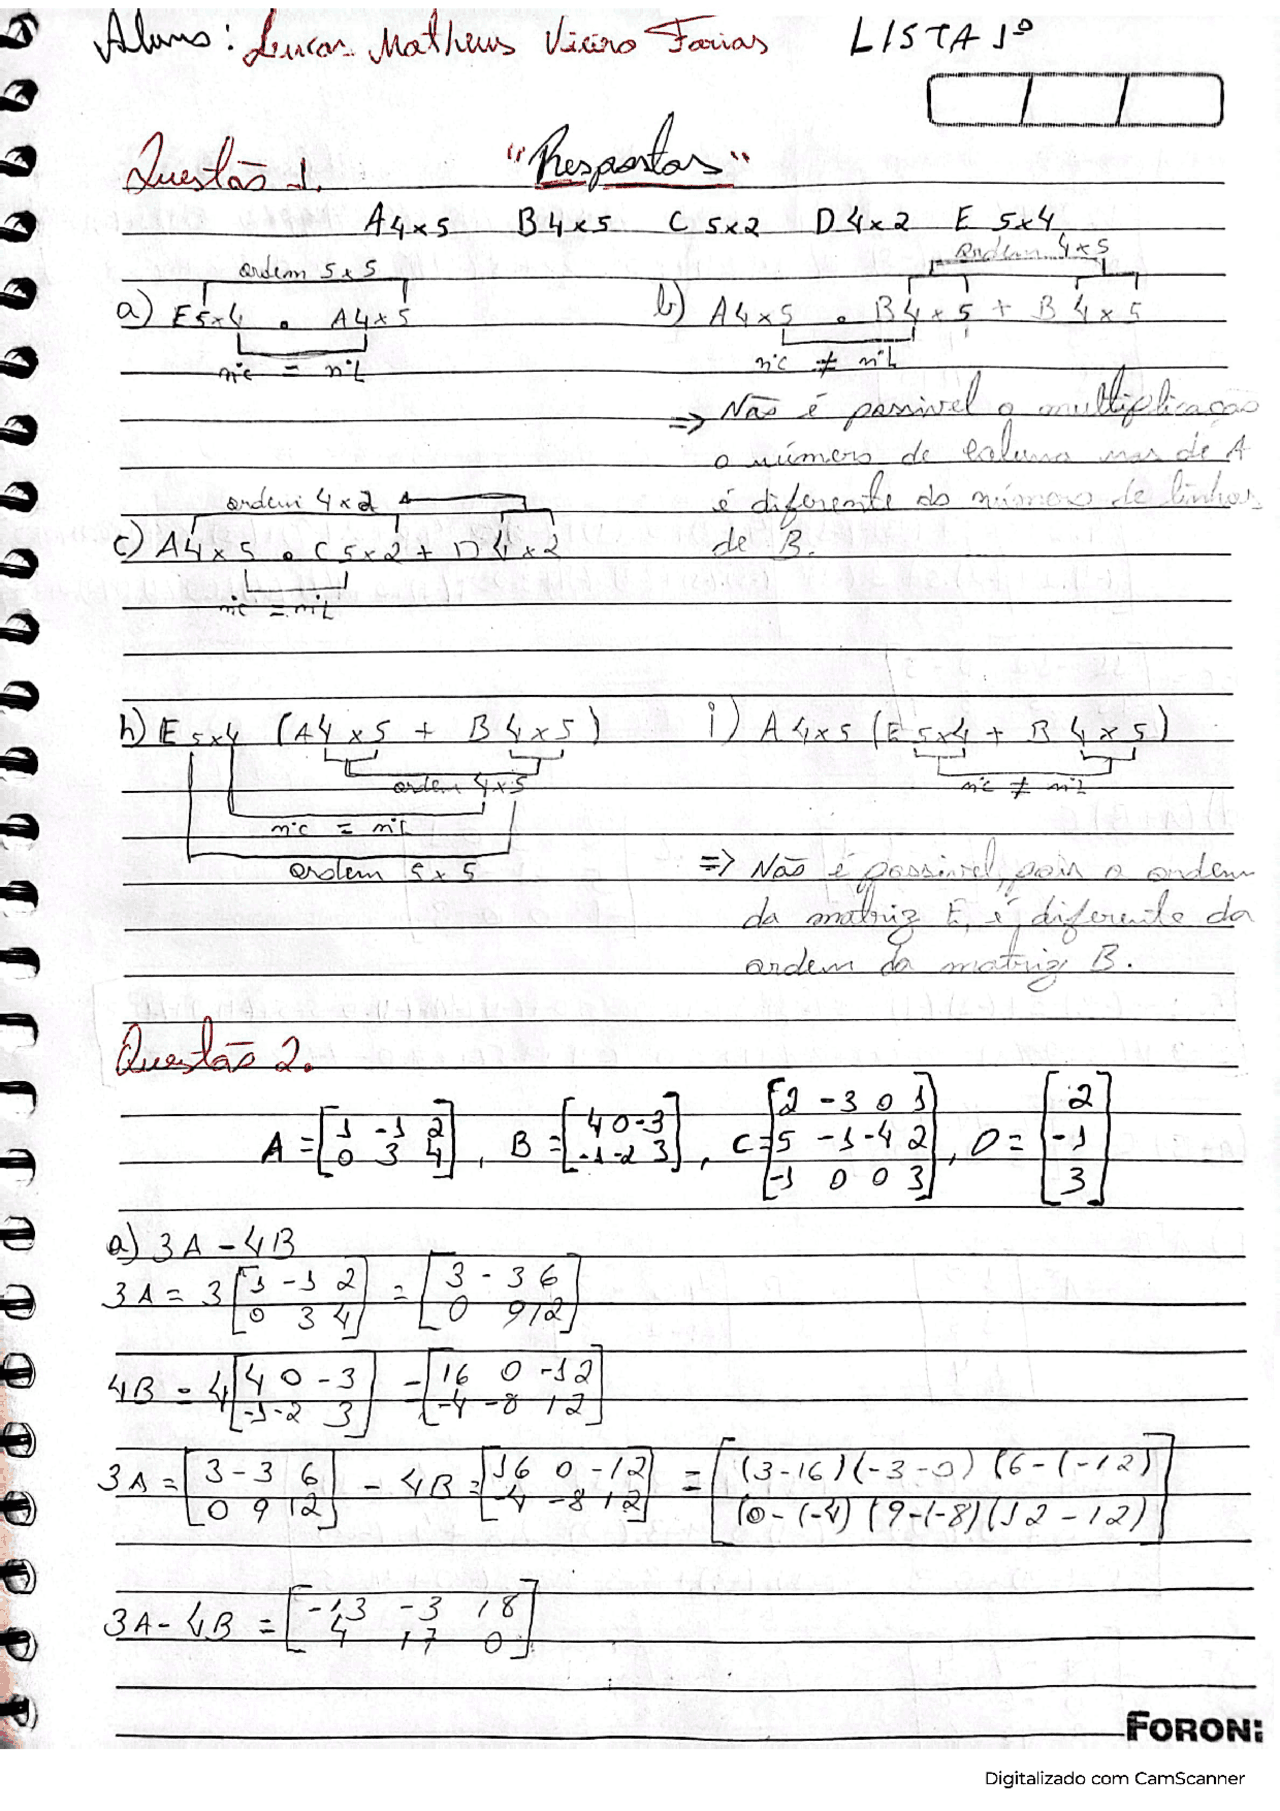 Aluno: Lucas Matheus Vieira Farias LISTA 1º
Questão 1. "Respostas"
A 4x5 B 4x5 C 5x2 D 4x2 E 5x4
ordem 5x5
ordem 4x5
a) E 5x4 . A 4x5
b) A 4x5 . B 4x5 + B 4x5
nºc = nºL
nºc ≠ nºL
=> Não é possivel a multiplicação
o número de coluna de A
é diferente do número de linhas
de B.
ordem 4x2
c) A 4x5 . C 5x2 + D 4x2
nºc = nºL
h) E 5x4 (A 4x5 + B 4x5)
ordem 4x5
nºc = nºL
ordem 5x5
i) A 4x5 (E 5x4 + B 4x5)
nºc ≠ nºL
=> Não é possivel, pois a ordem
da matriz E, é diferente da
ordem da matriz B.
Questão 2.
A = [1 -1 2; 0 3 4], B = [4 0 -3; -1 -2 3], C = [2 -3 0 1; 5 -1 -4 2; -1 0 0 3], D = [2; -1; 3]
a) 3A - 4B
3A = 3 [1 -1 2; 0 3 4] = [3 -3 6; 0 9 12]
4B = 4 [4 0 -3; -1 -2 3] = [16 0 -12; -4 -8 12]
3A = [3 -3 6; 0 9 12] - 4B = [16 0 -12; -4 -8 12] = [(3-16) (-3-0) (6-(-12); (0-(-4) (9-(-8) (12-12)]
3A - 4B = [-13 -3 18; 4 17 0]
FORONI
Digitalizado com CamScanner